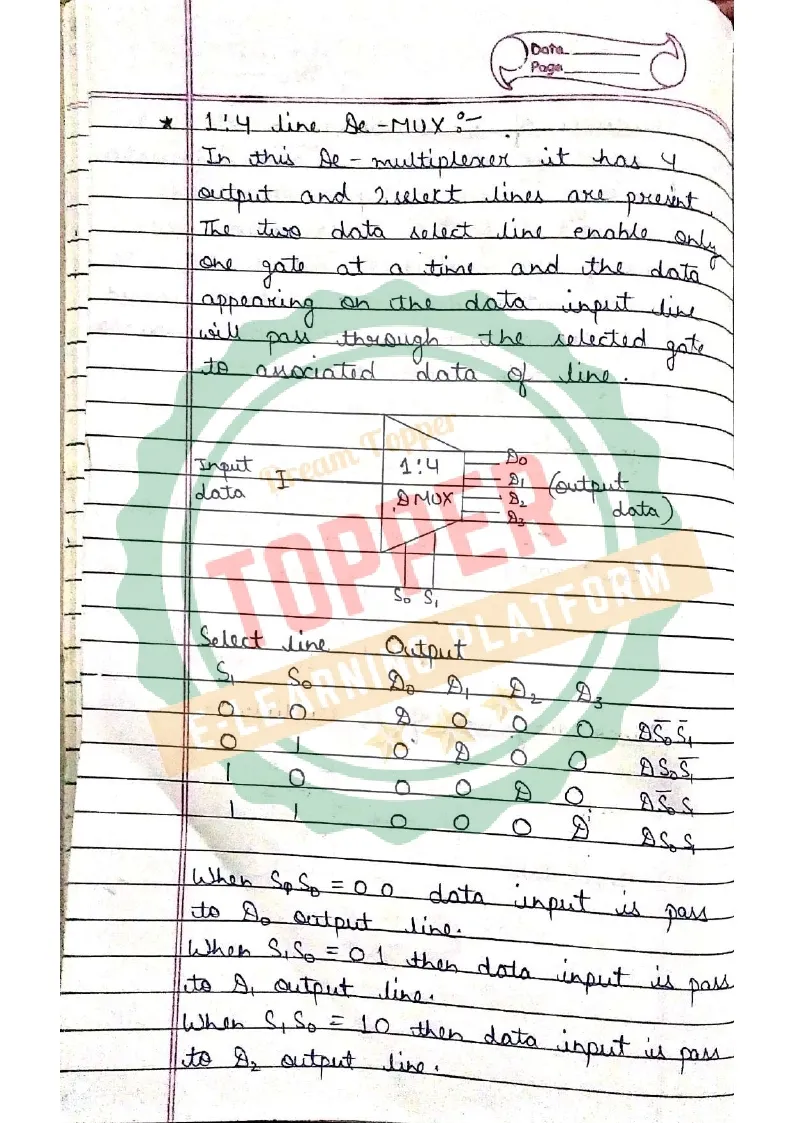 Date
Page
* 1:4 line De-MUX :-
In this De-multiplexer it has 4
output and 2 select lines are present.
The two data select line enable only
one gate at a time and the data
appearing on the data input line
will pass through the selected gate
to associated data of line.
Dream Topper
TOPPER
E-LEARNING PLATFORM
Input data I
1:4 DMUX
D₀
D₁
D₂
D₃
(output data)
S₀ S₁
Select line Output
S₁ S₀ D₀ D₁ D₂ D₃
0 0 D 0 0 0 DS̅₀S̅₁
0 1 0 D 0 0 DS₀S̅₁
1 0 0 0 D 0 DS̅₀S₁
1 1 0 0 0 D DS₀S₁
When S₁S₀ = 0 0 data input is pass
to D₀ output line.
When S₁S₀ = 0 1 then data input is pass
to D₁ output line.
When S₁S₀ = 10 then data input is pass
to D₂ output line.